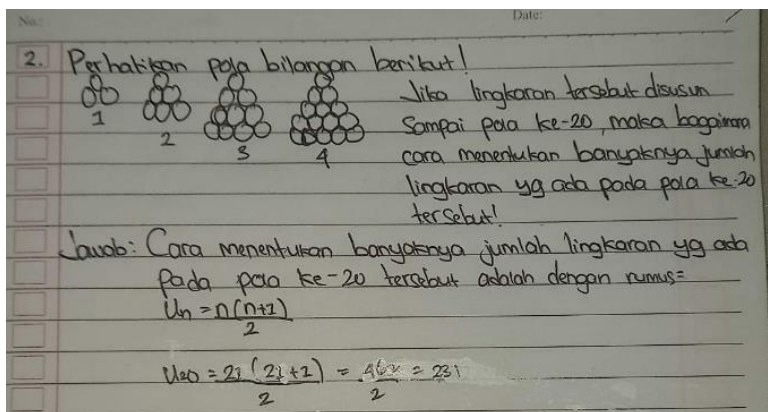 No:
Date:
2. Perhatikan pola bilangan berikut!
1
2
3
4
Jika lingkaran tersebut disusun
Sampai pola ke-20, maka bagaimana
cara menentukan banyaknya jumlah
lingkaran yg ada pada pola ke-20
tersebut!
Jawab: Cara menentukan banyaknya jumlah lingkaran yg ada
pada pola ke-20 tersebut adalah dengan rumus=
Un = n(n+1)
2
U20 = 21 (21+1) = 462 = 231
2 2